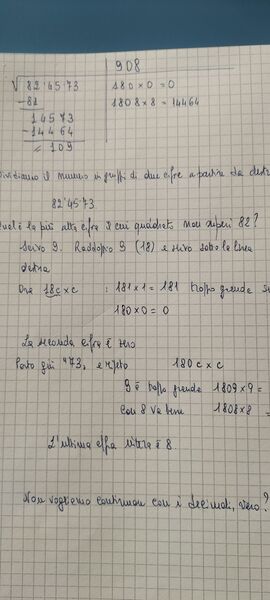 908
√ 82'45'73
180 x 0 = 0
-81
1808 x 8 = 14464
14573
-14464
= 109
Dividiamo il numero in gruppi di due cifre a partire da destra
82'45'73
Qual è la più alta cifra il cui quadrato non superi 82?
Scrivo 9. Raddoppio 9 (18) e scrivo sotto la linea
destra
Ora 18c x c : 181 x 1 = 181 troppo grande
180 x 0 = 0
La seconda cifra è zero
Porto giù "73, e ripeto 180c x c
9 è troppo grande 1809 x 9 =
Con 8 va bene 1808 x 8 =
L'ultima cifra intera è 8.
Non vogliamo continuare con i decimali, vero?